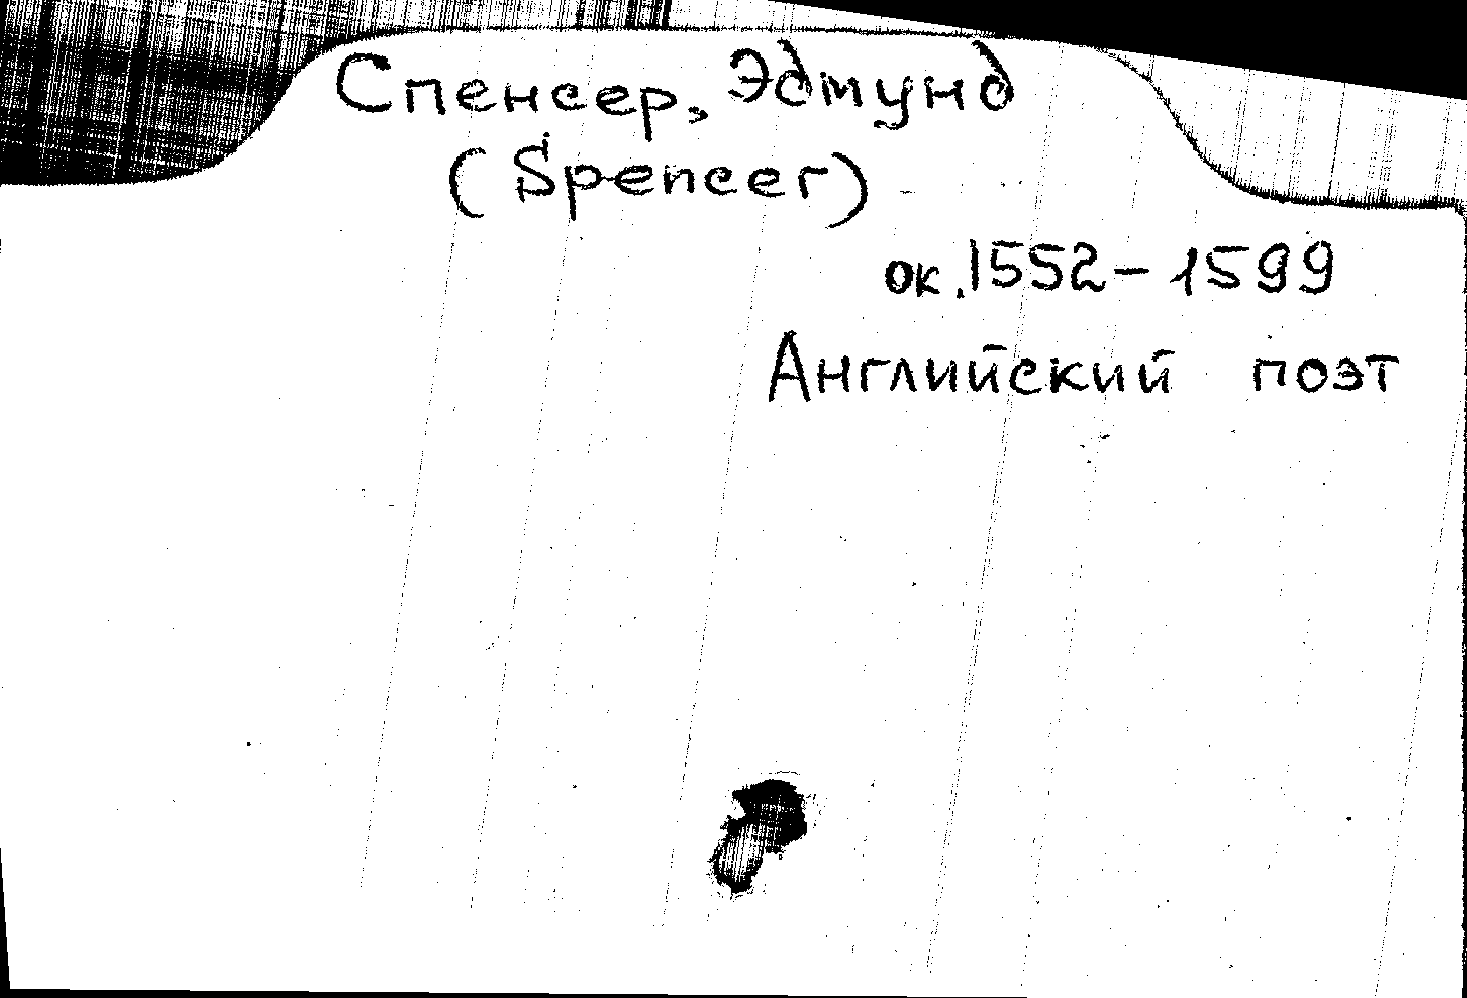 Спенсер, Эдмунд
(Spencer)
ок. 1552 - 1599
Английский поэт